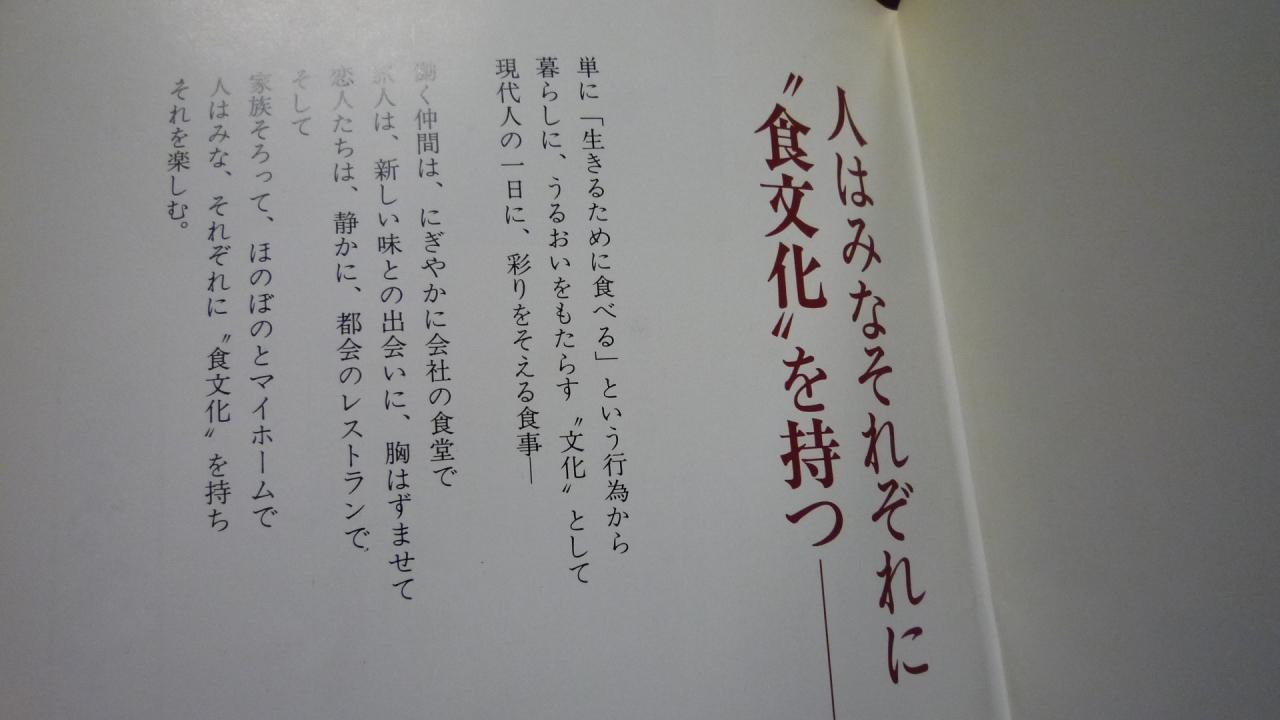 人はみなそれぞれに
〝食文化〟を持つ──
単に「生きるために食べる」という行為から
暮らしに、うるおいをもたらす〝文化〟として
現代人の一日に、彩りをそえる食事──
働く仲間は、にぎやかに会社の食堂で
旅人は、新しい味との出会いに、胸はずませて
恋人たちは、静かに、都会のレストランで、
そして
家族そろって、ほのぼのとマイホームで
人はみな、それぞれに〝食文化〟を持ち
それを楽しむ。